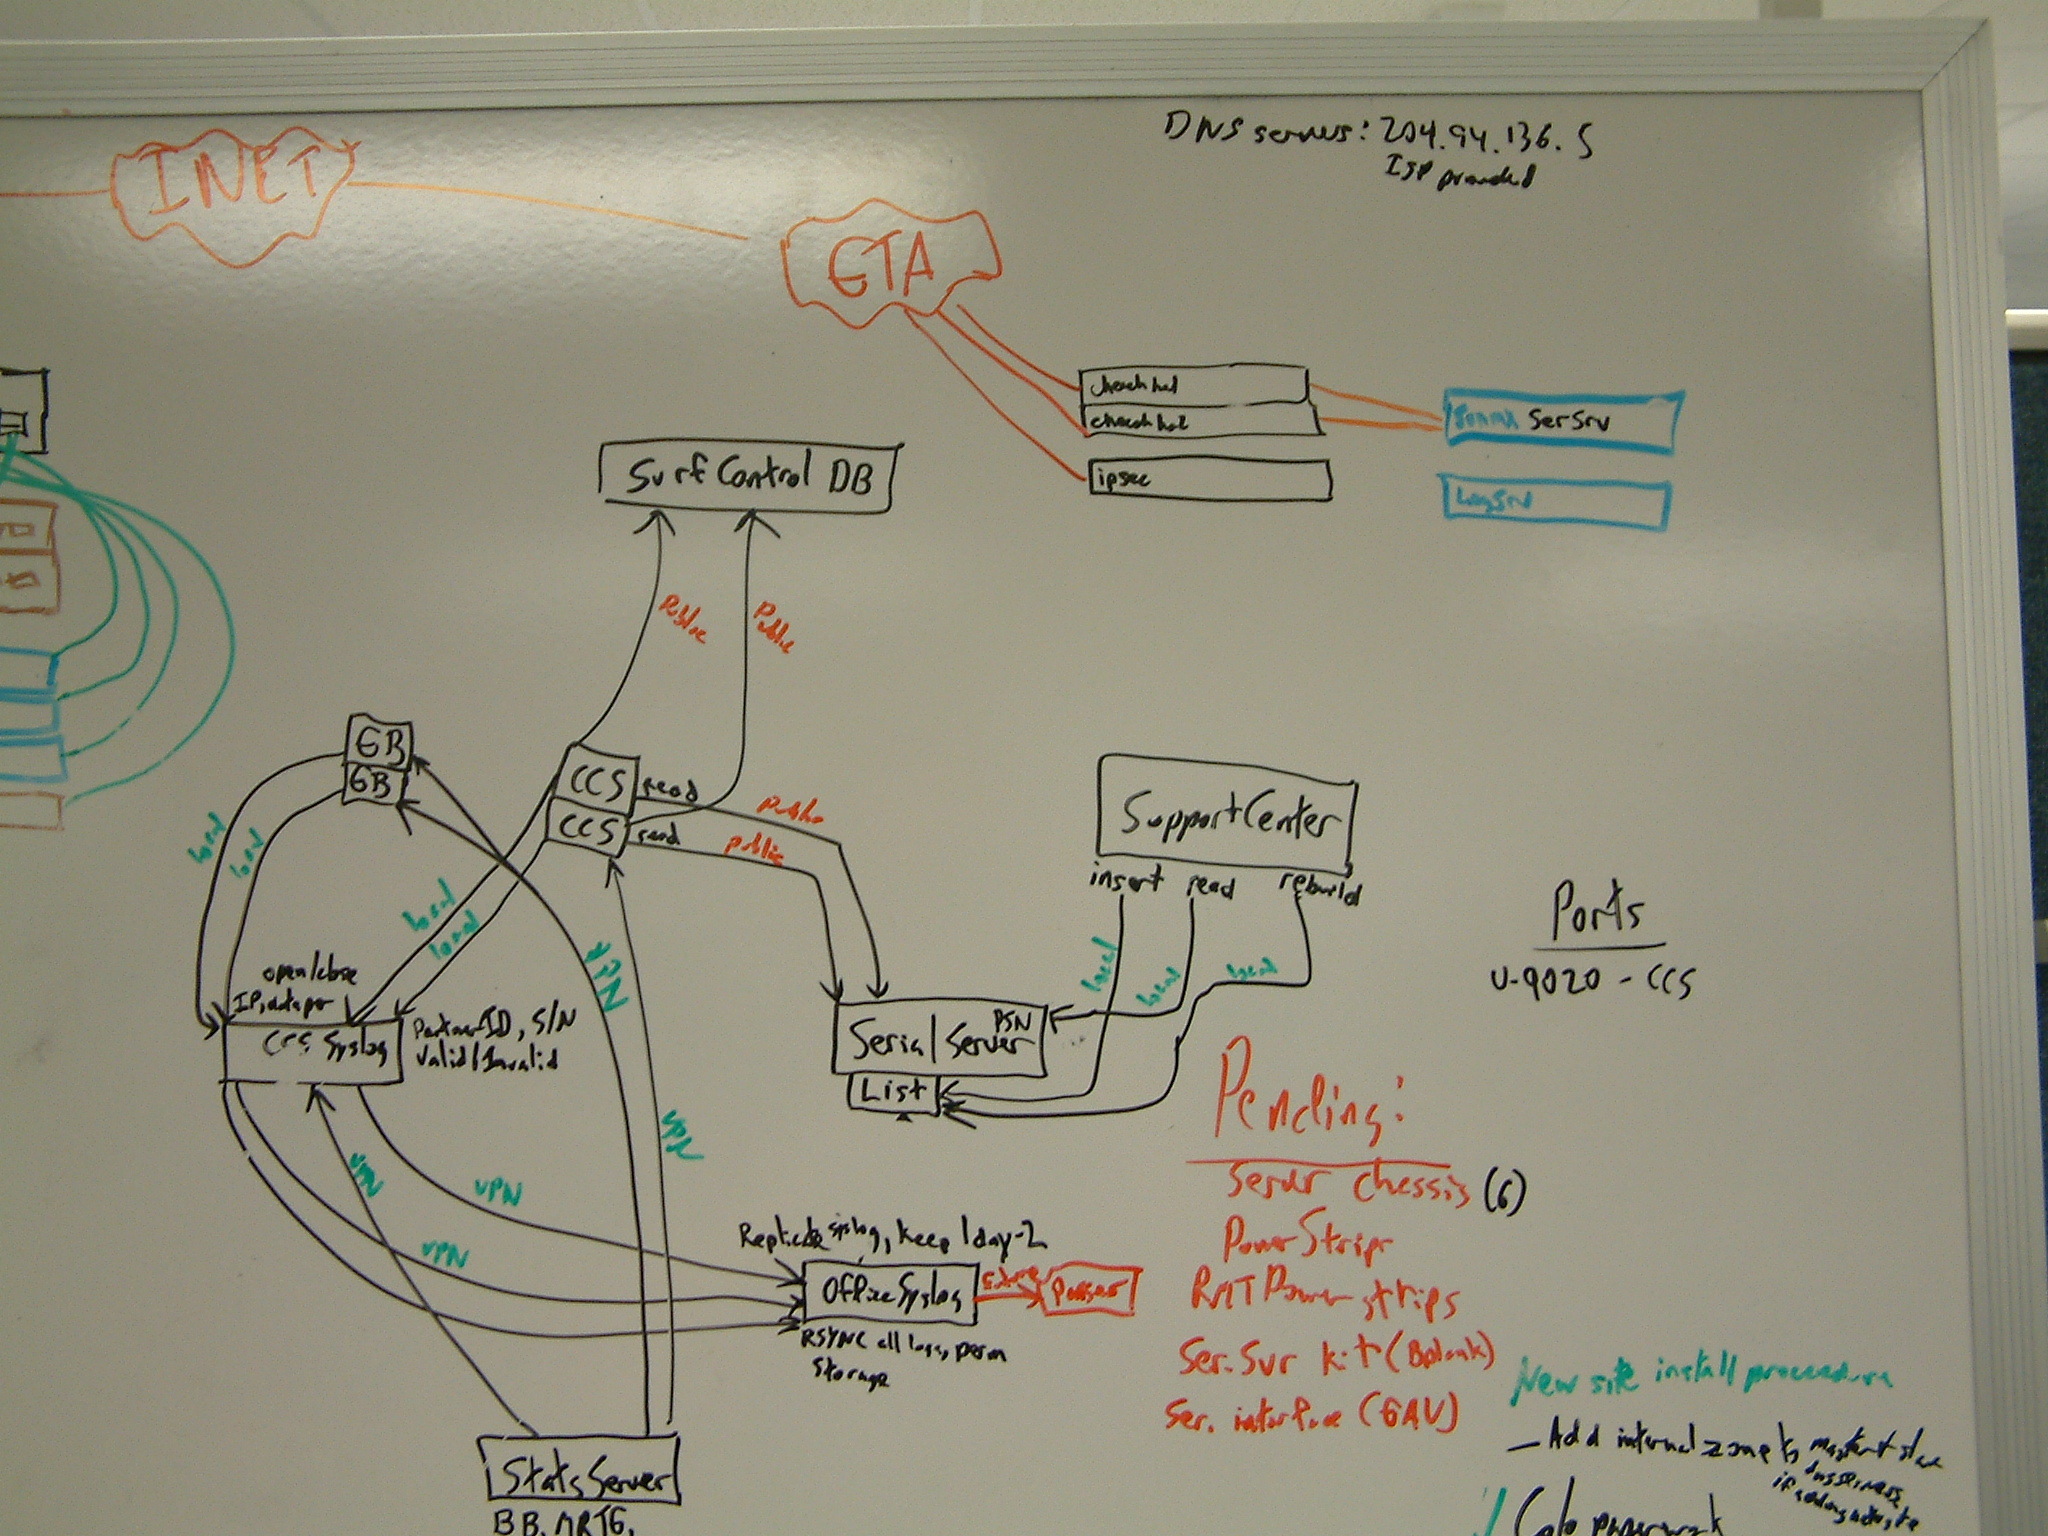 DNS servers: 204.94.136.5
ISP provided
INET
GTA
SerSrv
ipsec
LogSrv
SurfControl DB
Public
Public
GB
GB
CCS read
CCS read
public
public
local
local
local
local
SupportCenter
insert read rebuild
local
local
local
Ports
U-9020 - CCS
open/close
CCS Syslog
PartnerID, S/N
Valid/Invalid
PSN
Serial Server
List
VPN
VPN
VPN
VPN
VPN
Pending:
Server Chessis (6)
PowerStrips
RMT Power strips
Ser. Svr kit (Bplank)
Ser. interface (GAV)
Replicate syslog, keep 1 day-2
Office Syslog
Parser
RSYNC all logs, perm
Storage
Stats Server
BB, MRTG,
New site install proceedure
- Add internal zone to master + slave
dns servers
Colo paperwork